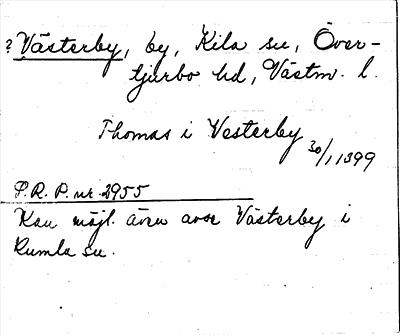 ? Västerby, by, Kila sn, Över-
tjurbo hd, Västm. l.
Thomas i Vesterby 30/1 1399
P.R.P. nr 2955
Kan möjl. även avse Västerby i
Kumla sn.